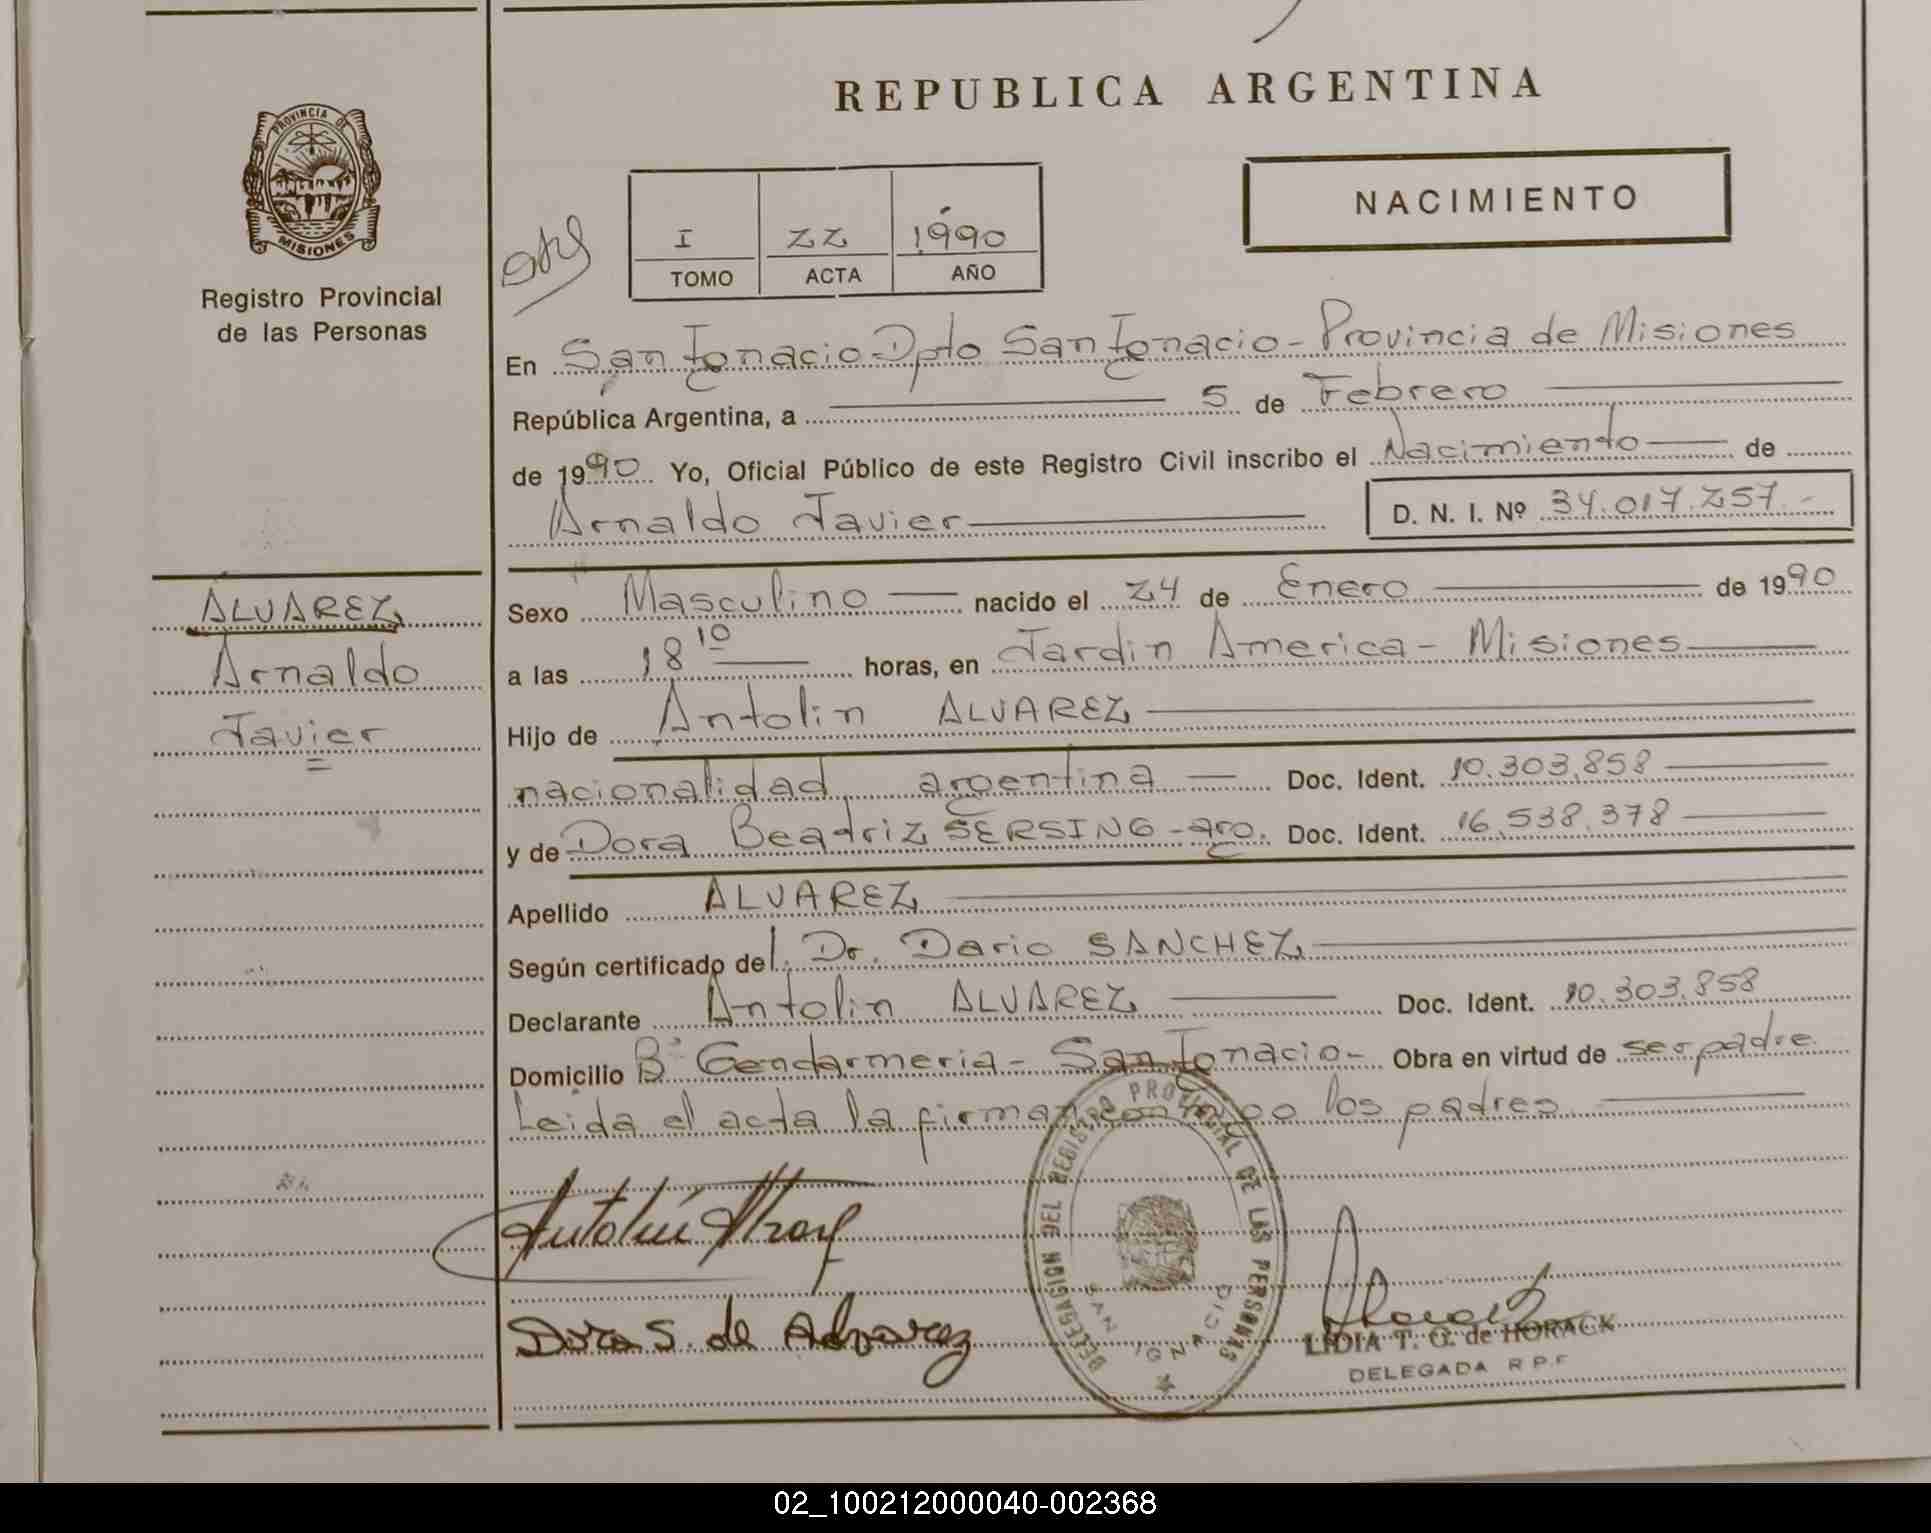 REPUBLICA ARGENTINA
PROVINCIA DE
MISIONES
Registro Provincial
de las Personas
NACIMIENTO
I 22 1990
TOMO ACTA AÑO
En San Ignacio Dpto San Ignacio - Provincia de Misiones
República Argentina, a 5 de Febrero
de 1990 Yo, Oficial Público de este Registro Civil inscribo el Nacimiento de
Arnaldo Javier D. N. I. Nº 34.017.257.-
ALVAREZ
Arnaldo
Javier
Sexo Masculino nacido el 24 de Enero de 1990
a las 18 10 horas, en Jardin America - Misiones
Hijo de Antolin ALVAREZ
nacionalidad argentina Doc. Ident. 10.303.858
y de Dora Beatriz SERSING - arg. Doc. Ident. 16.538.378
Apellido ALVAREZ
Según certificado del Dr. Dario SANCHEZ
Declarante Antolin ALVAREZ Doc. Ident. 10.303.858
Domicilio Bº Gendarmeria - San Ignacio - Obra en virtud de ser padre
Leida el acta la firman conmigo los padres
DELEGACION DEL REGISTRO PROVINCIAL DE LAS PERSONAS
SAN IGNACIO
Antolin
Dora S. de Alvarez
LIDIA T. G. de HORACK
DELEGADA R P F
02_100212000040-002368